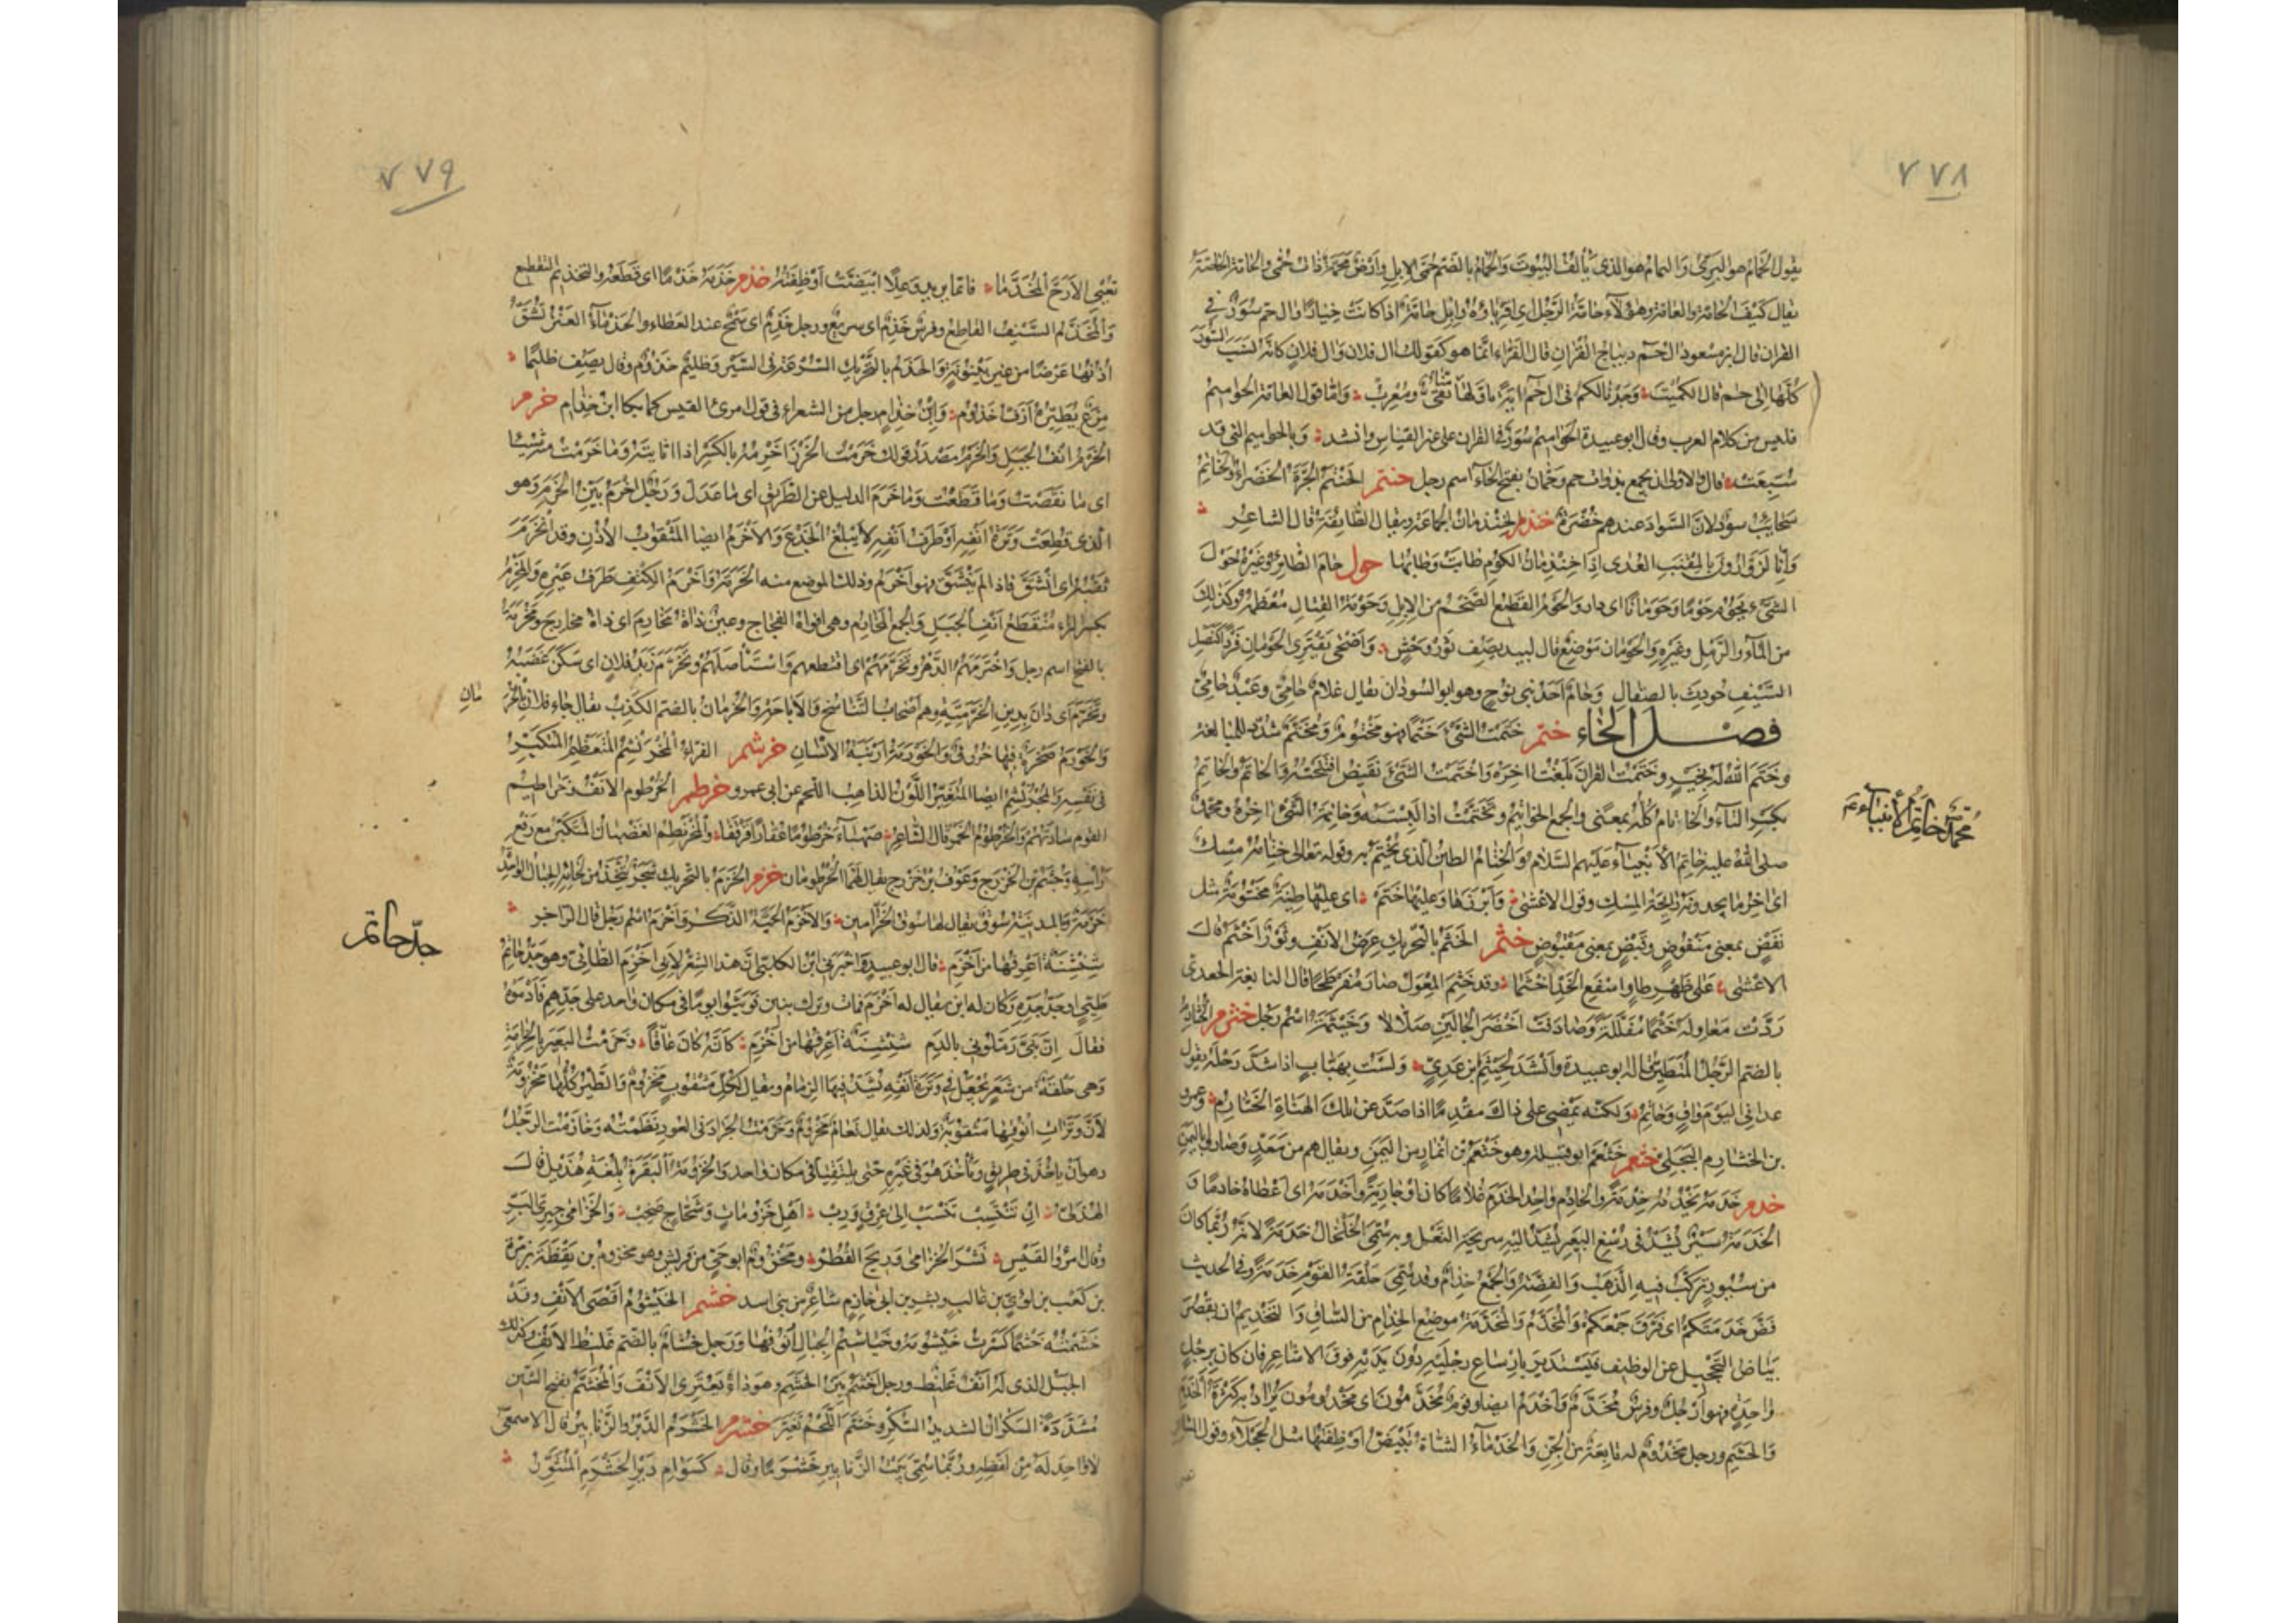 ٧٧٨
يقول الحمام هو البري واليمام هو الذي يألف البيوت والحمام بالضم حمى الابل وارض محمة ذات حمى والحامة الخاصة
يقال كيف الحامة والعامة وهؤلاء حامة الرجل اي اقرباؤه وابل حامة اذا كانت خيارا وال حم سور في
القران قال ابن مسعود ال حم ديباج القران قال الفراء انما هو كقولك ال فلان وال فلان كانه نسب السورة
كلها الى حم قال الكميت وجدنا لكم في ال حم اية تاولها منا تقي ومعرب واما قول العامة الحواميم
فليس من كلام العرب وقال ابو عبيدة الحواميم سور في القران على غير القياس وانشد وبالحواميم التي قد
سبعت قال والاولى ان يجمع بذوات حم وحمان بفتح الحاء اسم رجل حنتم الحنتم الجرة الخضراء والحناتم
سحايب سود لان السواد عندهم خضرة
وانا لزوارون بالمقنب العدى اذا حول حام الطائر وغيره حول
الشيء يحوم حوما وحومانا اي دار والحوم القطيع الضخم من الابل وحومة القتال معظمه وكذلك
من الماء والرمل وغيره والحومان موضع قال لبيد يصف ثور وحش واضحى يقتري الحومان فردا كنصل
السيف حودث بالصقال وحام احد بني نوح وهو ابو السودان يقال غلام حامي وعبد حامي
فصل الخاء ختم ختمت الشيء ختما فهو مختوم ومختم شدد للمبالغة
وختم الله له بخير وختمت القران بلغت اخره واختتمت الشيء نقيض افتتحته والخاتم والخاتم
بكسر التاء والخاتام كله بمعنى والجمع الخواتيم وتختمت اذا لبسته وخاتمة الشيء اخره ومحمد
صلى الله عليه خاتم الانبياء عليهم السلام والختام الطين الذي يختم به وقوله تعالى ختامه مسك
اي اخر ما يجدونه رائحة المسك وقول الاعشى وابرزها وعليها ختم اي عليها طينة مختومة مثل
نفض بمعنى منفوض وقبض بمعنى مقبوض خثم الخثم بالتحريك عرض الانف وثور اخثم قال
الاعشى على ظهر طاو اسفع الخد اخثما وقد خثم المعول صار مفرطحا قال النابغة الجعدي
ردت معاوله خثما مفللة وصادفت اخضر الجالين صلالا وخيثمة اسم رجل خثرم الخثارم
بالضم الرجل المتطير قاله ابو عبيدة وانشد لخيثم بن عدي ولست بهياب اذا شد رحله يقول
عداني اليوم واق وحاتم ولكنه يمضي على ذاك مقدما اذا صد عن تلك الهناة الخثارم وعمرو
بن الخثارم البجلي خثعم خثعم ابو قبيلة وهو خثعم بن انمار من اليمن ويقال هم من معد وصاروا باليمن
خدم خدمه يخدمه خدمة والخادم واحد الخدم غلاما كان او جارية واخدمه اي اعطاه خادما و
الخدمة سير يشد في رسغ البعير يشد اليه سريحة النعل وبه سمي الخلخال خدمة لانه ربما كان
من سيور يركب فيه الذهب والفضة والجمع خدام وقد تسمى حلقة القوم خدمة وفي الحديث
فض خدمتكم اي فرق جمعكم والمخدم والمخدمة موضع الخدام من الساق والتخديم ان يقصر
بياض التحجيل عن الوظيف فيستدير بارساغ رجليه دون يديه فوق الاشاعر فان كان برجل
واحدة فهو ارجل وفرس مخدم واخدم ايضا وقوم مخدمون اي مخدومون يراد به كثرة الخدم
والحشم ورجل مخدوم له تابعة من الجن والخدماء الشاة تبيض اوظفتها مثل الحجلاء وقول
محمد خاتم الأنبياء عم
٧٧٩
تعيي الارح المخدما فانما يريد وعلا ابيضت اوظفته خذم خذمه خذما اي قطعه والتخذيم التقطيع
والمخذم السيف القاطع وفرس خذم اي سريع ورجل خذم اي سمح عند العطاء والخذماء العنز تشق
اذنها عرضا من غير بينونة والخذم بالتحريك السرعة في السير وظليم خذوم وقال يصف ظليما
مزع يطيره ازف خذوم وابن خذام رجل من الشعراء في قول امرئ القيس كما بكى ابن خذام خرم
الخرم انف الجبل والخرم مصدر قولك خرمت الخرز اخرمه بالكسر اذا اثايته وما خرمت منه شيئا
اي ما نقصت وما قطعت وما خرم الدليل عن الطريق اي ما عدل ورجل اخرم بين الخرم وهو
الذي قطعت وترة انفه او طرف انفه لا يبلغ الجدع والاخرم ايضا المثقوب الاذن وقد انخرم
ثقبه اي انشق فاذا لم ينشق فهو اخرم وذلك الموضع منه الخرمة واخرم الكتف طرف عيره والمخرم
بكسر الراء منقطع انف الجبل والجمع المخارم وهي افواه الفجاج وعين ذات مخارم اي ذات مخارج ومخرمة
بالفتح اسم رجل واخترمهم الدهر وتخرمهم اي اقتطعهم واستاصلهم وتخرم زبد فلان اي سكن غضبه
وتخرم اي دان بدين الخرمية وهم اصحاب التناسخ والاباحة والخرمان بالضم الكذب يقال جاء فلان بالخر
مان
والخورم صخرة فيها خروق والخورمة ارنبة الانسان خرشم الفراء المخرنشم المتعظم المتكبر
في نفسه والمخرنشم ايضا المتغير اللون الذاهب اللحم عن ابي عمرو خرطم الخرطوم الانف وخراطيم
القوم ساداتهم والخرطوم الخمر قال الشاعر صهباء خرطوما عقارا قرقفا والمخرنطم الغضبان المتكبر مع رفع
راسه وجشم بن الخزرج وعوف بن خزرج يقال لهما الخرطومان خزم الخزم بالتحريك شجر يتخذ من لحائه الحبال الواحدة
خزمة وبالمدينة سوق يقال لها سوق الخزامين والاخزم الحية الذكر واخزم اسم رجل قال الراجز
شنشنة اعرفها من اخزم قال ابو عبيدة اخبرني ابن الكلبي ان هذا الشعر لابي اخزم الطائي وهو جد حاتم
طيي او جد جده وكان له ابن يقال له اخزم فمات وترك بنين فوثبوا يوما في مكان واحد على جدهم فادموه
فقال ان بني رملوني بالدم شنشنة اعرفها من اخزم كانه كان عاقا وخزمت البعير بالخزامة
وهي حلقة من شعر تجعل في وترة انفه يشد فيها الزمام ويقال لكل مثقوب مخزوم والطير كلها مخزومة
لان وترات انوفها مثقوبة ولذلك يقال نعام مخزوم وخزمت الجراد في العود نظمته وخازمت الرجل
وهو ان ياخذ في طريق وتاخذ هو في غيره حتى يلتقيا في مكان واحد والخزومة البقرة بلغة هذيل قال
الهذلي ان تنتسب تنسب الى عرق ورب اهل خزومات وشحاج صخب والخزامى خيري البر
وقال امرؤ القيس نشر الخزامى وريح القطر ومخزوم ابو حي من قريش وهو مخزوم بن يقظة بن مرة
بن كعب بن لؤي بن غالب وبشر بن ابي خازم شاعر من بني اسد خشم الخيشوم اقصى الانف وقد
خشمته خشما كسرت خيشومه وخياشيم الجبال انوفها ورجل خشام بالضم غليظ الانف وكذلك
الجبل الذي له انف غليظ ورجل اخشم بين الخشم وهو داء يعتري الانف والمخشم بفتح الشين
مشددة السكران الشديد السكر وخشم اللحم تغير خشرم الخشرم الدبر والزنابير قال الاصمعي
لا واحد له من لفظه وربما سمي بيت الزنابير خشرما وقال كسوام دبر الخشرم المتثور
جد حاتم